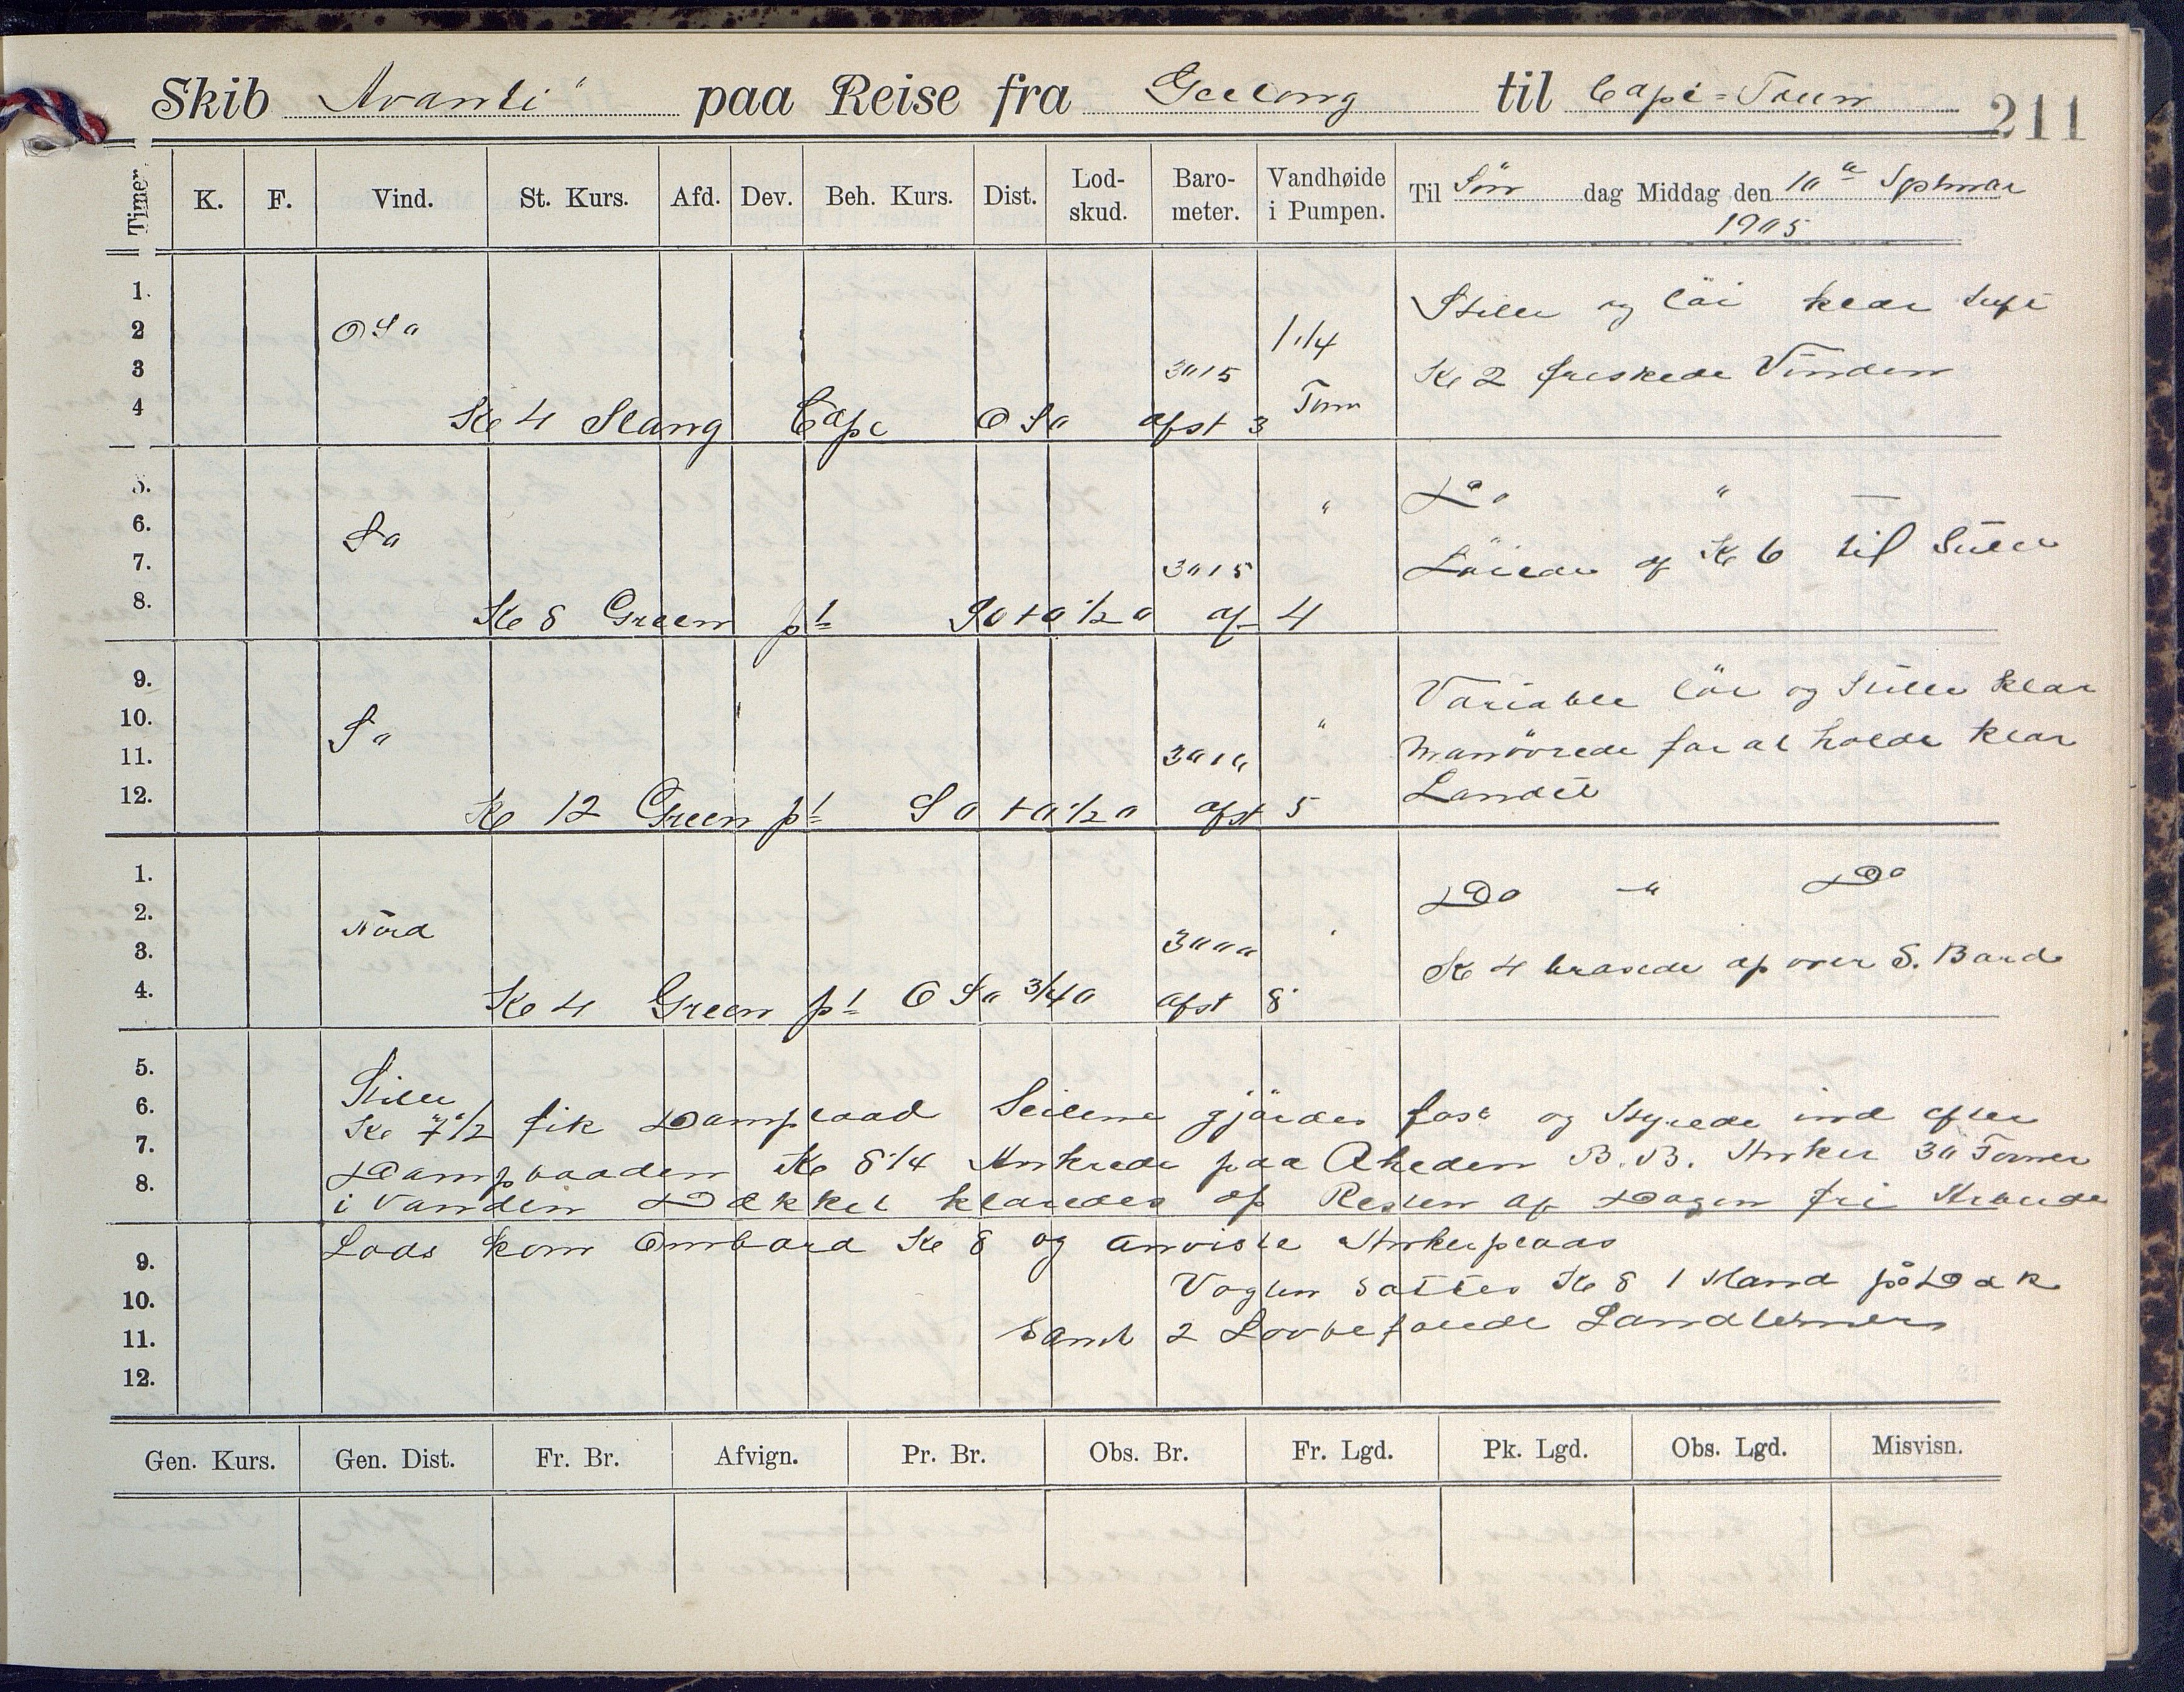 Skib Avanti" paa Reise fra Geelong til Cape=Town 211
Timer. K. F. Vind. St. Kurs. Afd. Dev. Beh. Kurs. Dist. Lod-skud. Baro-meter. Vandhøide i Pumpen. Til Søn dag Middag den 10 Sptmbr
1905
1. Stille og löi klar Luft
2 OSO 1 1/4
3 3015 Kl 2 friskede Vinden
4 Kl 4 Slang Cape OSO afst 3 Tom
5. " Do "
6. SO
7. 3015 Löiede af Kl 6 til Stille
8. Kl 8 Green pt SO t O 1/2 O af 4
9. Variable löi og Stille klar
10. SO "
11. 3010 Manövrede for at holde klar
12. Kl 12 Green pt SO t O 1/2 O afst 5 Landet
1. Do " Do
2. Nord
3. 3000 Kl 4 brasede op over S. Bord
4. Kl 4 Green pt OSO 3/4 O afst 8
5. Stille
6. Kl 7 1/2 fik Dampbaad Seilene gjördes fast og Styrede ind efter
7. Dampbaaden Kl 8 1/4 Ankrede paa Rheden B.B. Anker 30 Favner
8. i Vandin Dækket klaredes op Resten af Dagen fri
Lods kom Ombord Kl 8 og anviste Ankerplads
9.
10. Vagten sattes Kl 8 1 Mand på Dæk
11. samt 2 Lovbefalede Landterner
12.
Gen. Kurs. Gen. Dist. Fr. Br. Afvign. Pr. Br. Obs. Br. Fr. Lgd. Pk. Lgd. Obs. Lgd. Misvisn.